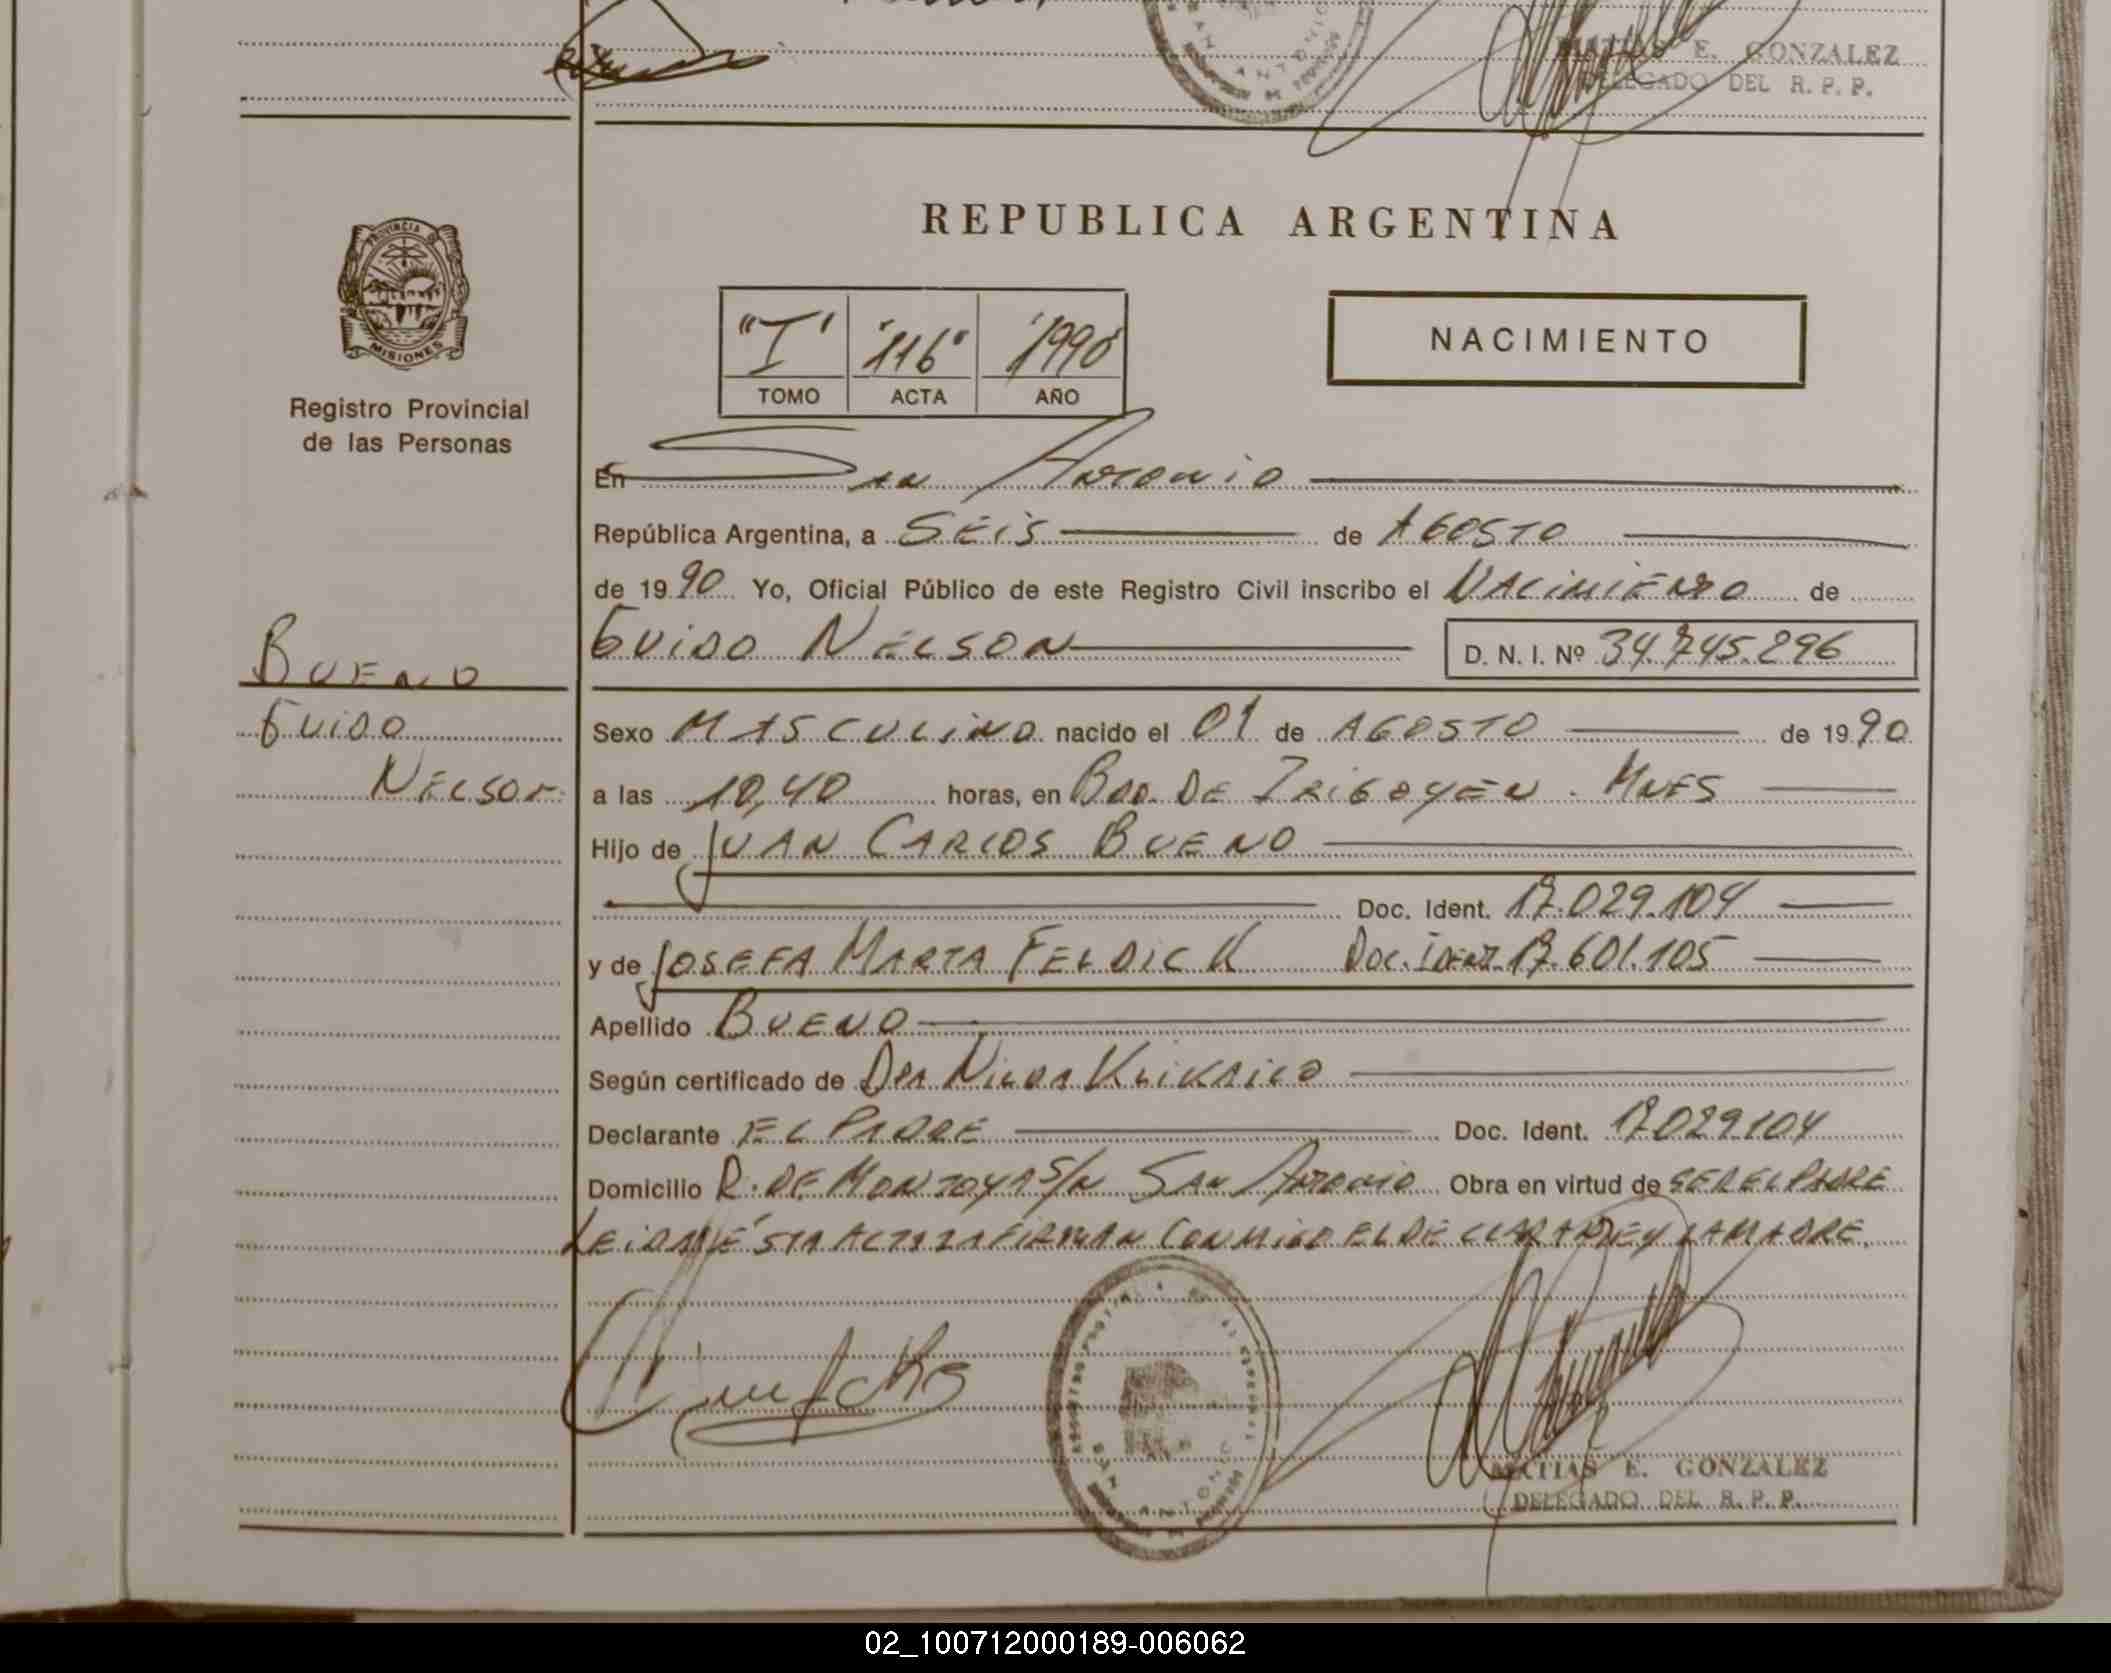 MATIAS E. GONZALEZ
DELEGADO DEL R. P. P.
REPUBLICA ARGENTINA
PROVINCIA DE
MISIONES
Registro Provincial
de las Personas
"I" "116" "1990"
TOMO ACTA AÑO
NACIMIENTO
En San Antonio
República Argentina, a SEIS de AGOSTO
de 1990 Yo, Oficial Público de este Registro Civil inscribo el NACIMIENTO de
GUIDO NELSON D. N. I. Nº 34.745.296
BUENO
GUIDO
NELSON
Sexo MASCULINO nacido el 01 de AGOSTO de 1990
a las 10,40 horas, en BDO. DE IRIGOYEN - MNES
Hijo de JUAN CARLOS BUENO
Doc. Ident. 17.029.104
y de JOSEFA MARTA FELDICK Doc. IDENT. 17.601.105
Apellido BUENO
Según certificado de DRA NILDA
Declarante EL PADRE Doc. Ident. 17.029.104
Domicilio R. DE MONTOYA S/N SAN ANTONIO Obra en virtud de SER EL PADRE
LEIDA ÉSTA ACTA LA FIRMAN CONMIGO EL DECLARANTE Y LA MADRE.
SAN ANTONIO
MATIAS E. GONZALEZ
DELEGADO DEL R. P. P.
02_100712000189-006062